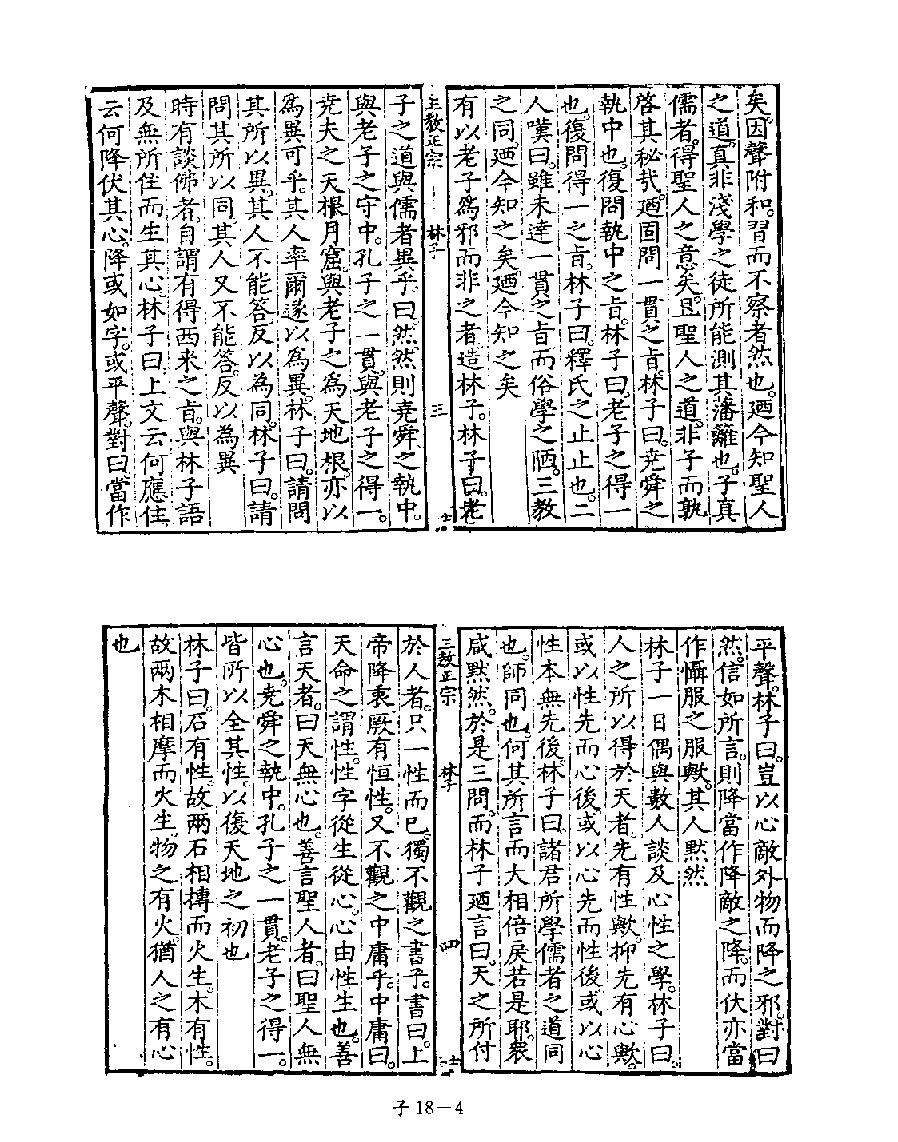 矣。因聲附和。習而不察者然也。廼今知聖人
之道。真非淺學之徒所能測其藩籬也。子真
儒者。得聖人之意矣。且聖人之道。非子而孰
啓其秘哉。廼固問一貫之旨。林子曰。堯舜之
執中也。復問執中之旨。林子曰。老子之得一
也。復問得一之旨。林子曰。釋氏之止止也。二
人嘆曰。雖未達一貫之旨。而俗學之陋。三教
之同。廼今知之矣。廼今知之矣
有以老子為邪而非之者造林子。林子曰。老
三教正宗 林子 三
子之道與儒者異乎。曰然。然則堯舜之執中。
與老子之守中。孔子之一貫。與老子之得一。
堯夫之天根月窟。與老子之為天地根。亦以
為異可乎。其人率爾遂以為異。林子曰。請問
其所以異。其人不能答。反以為同。林子曰。請
問其所以同。其人又不能答。反以為異
時有談佛者。自謂有得西來之旨。與林子語
及無所住而生其心。林子曰。上文云何應住。
云何降伏其心。降或如字。或平聲。對曰。當作
平聲。林子曰。豈以心敵外物而降之邪。對曰
然。信如所言。則降當作降敵之降。而伏亦當
作懾服之服歟。其人默然
林子一日偶與數人談及心性之學。林子曰。
人之所以得於天者。先有性歟。抑先有心歟。
或以性先而心後。或以心先而性後。或以心
性本無先後。林子曰。諸君所學。儒者之道同
也。師同也。何其所言而大相倍戾若是耶。衆
咸默然。於是三問。而林子廼言曰。天之所付
三教正宗 林子 四
於人者。只一性而已。獨不觀之書乎。書曰。上
帝降衷。厥有恒性。又不觀之中庸乎。中庸曰。
天命之謂性。性字從生從心。心由性生也。善
言天者。曰天無心也。善言聖人者。曰聖人無
心也。堯舜之執中。孔子之一貫。老子之得一。
皆所以全其性。以復天地之初也
林子曰。石有性。故兩石相摶而火生。木有性。
故兩木相摩而火生。物之有火。猶人之有心
也
子18－4